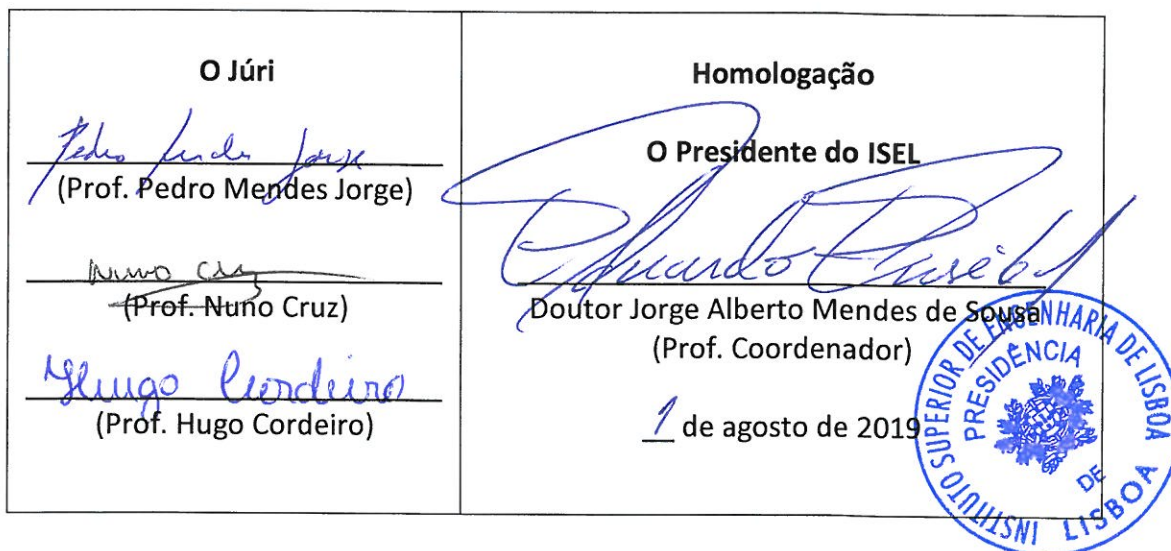 O Júri
Pedro Mendes Jorge
(Prof. Pedro Mendes Jorge)
Nuno Cruz
(Prof. Nuno Cruz)
Hugo Cordeiro
(Prof. Hugo Cordeiro)
Homologação
O Presidente do ISEL
Eduardo Eusébio
Doutor Jorge Alberto Mendes de Sousa
(Prof. Coordenador)
1 de agosto de 2019
INSTITUTO SUPERIOR DE ENGENHARIA DE LISBOA
PRESIDÊNCIA
DE
LISBOA